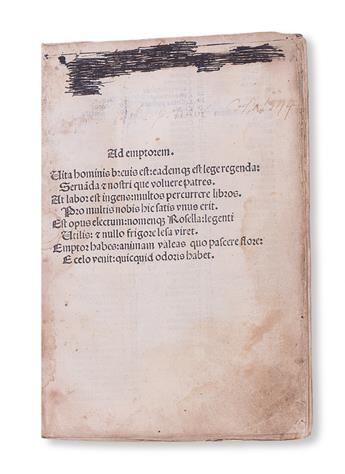 Ad emptorem.
Uita hominis breuis est: eademq est lege regenda:
Seruãda ⁊ nostri que voluere patres.
At labor est ingens: multos percurrere libros.
Pro multis nobis hic satis vnus erit.
Est opus electum: nomenq Rosella: legenti
Utilis: ⁊ nullo frigore lesa viret.
Emptor habes: animam valeas quo pascere flore:
E celo venit: quicquid odoris habet.